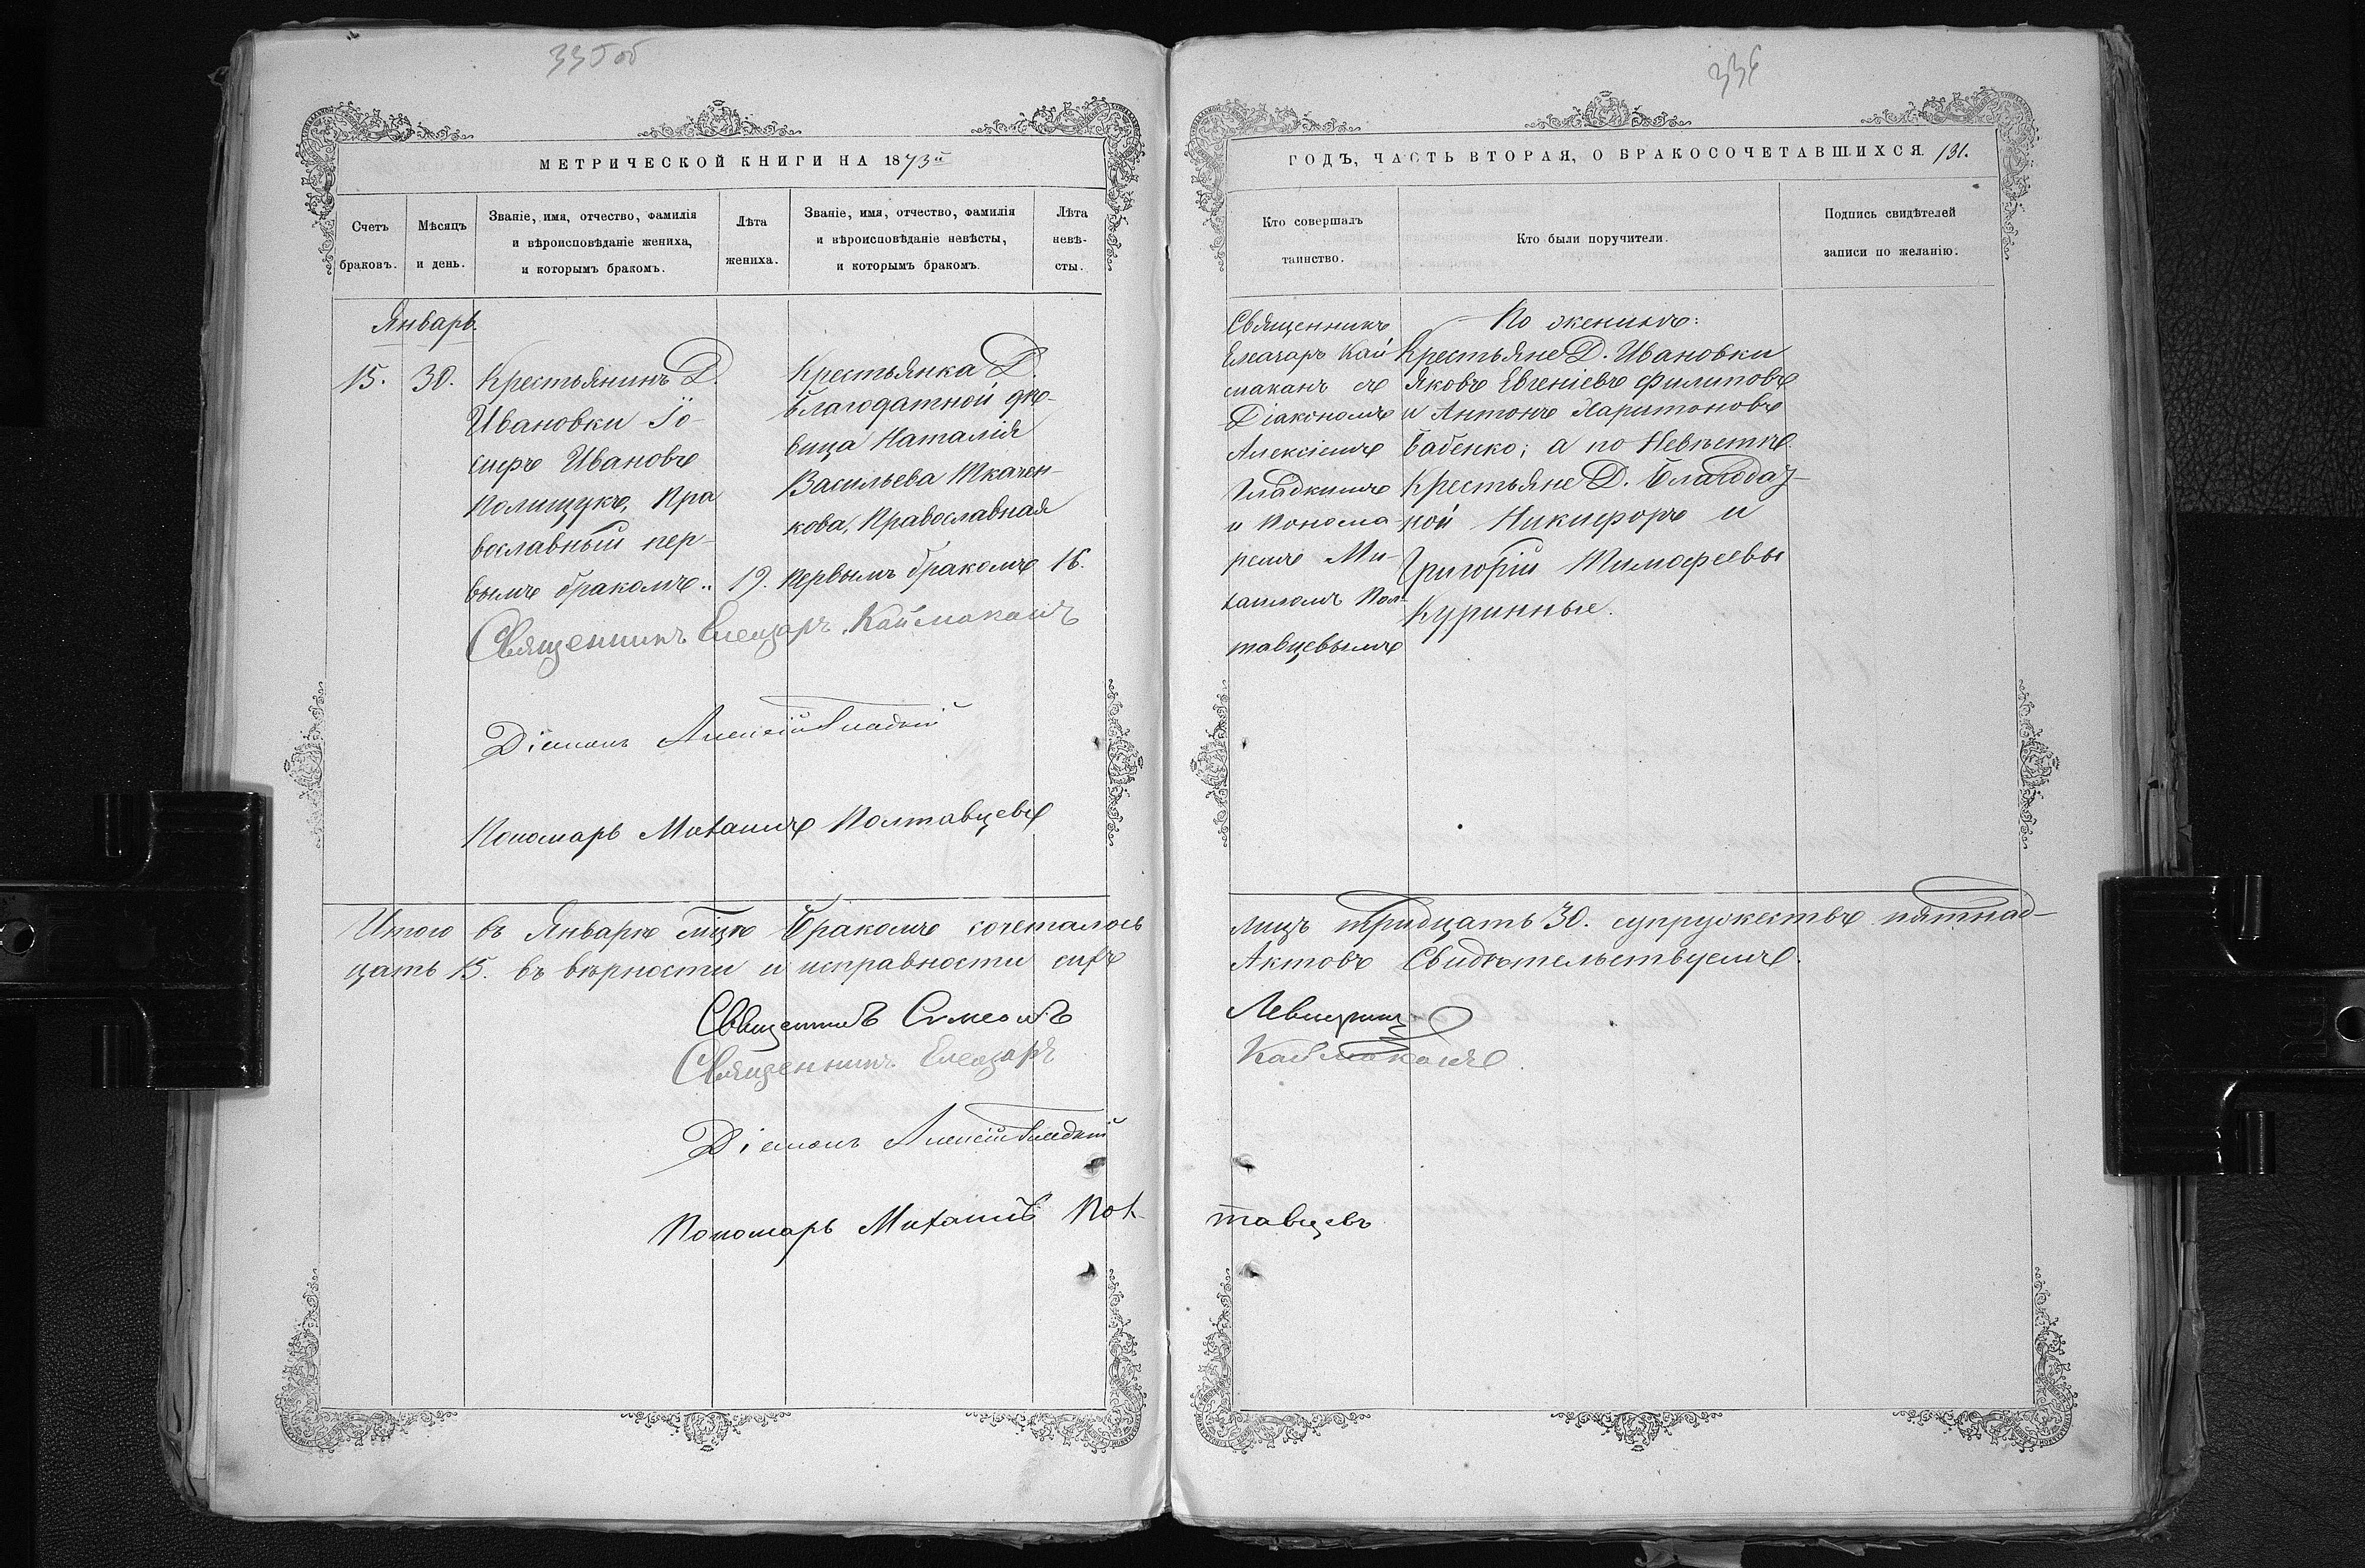 335 об
МЕТРИЧЕСКОЙ КНИГИ НА 1873й
Счетъ браковъ.
Мѣсяцъ и день.
Званіе, имя, отчество, фамилія
и вѣроисповѣданіе жениха,
и которымъ бракомъ.
Лѣта жениха.
Званіе, имя, отчество, фамилія
и вѣроисповѣданіе невѣсты,
и которымъ бракомъ.
Лѣта невѣ-
сты.
Январь.
15. 30.
Крестьянинъ Д.
Ивановки Іо-
сифъ Ивановъ
Полищукъ, Пра
вославный пер-
вымъ бракомъ..
19.
Крестьянка Д.
Благодатной дѣ-
вица Наталія
Васильева Ткачен-
кова, Православная
первымъ бракомъ
16.
Священникъ Елеазаръ Каймаканъ
Діаконъ Алексій Гладкій
Пономарь Михаилъ Полтавцевъ
Итого въ Январѣ мцѣ бракомъ сочеталось
цать 15. въ вѣрности и исправности сихъ
Священникъ Симеонъ
Священникъ Елеазаръ
Діаконъ Алексій Гладкій
Пономарь Михаилъ Пол-
336
ГОДЪ, ЧАСТЬ ВТОРАЯ, О БРАКОСОЧЕТАВШИХСЯ. 131.
Кто совершалъ
таинство.
Кто были поручители.
Подпись свидѣтелей
записи по желанію.
Священникъ
Елеазаръ Кай
маканъ съ
Діакономъ
Алексіемъ
Гладкимъ
и Понома-
ремъ Ми-
хаиломъ Пол-
тавцевымъ
По женихѣ:
Крестьяне Д. Ивановки
Яковъ Евгеніевъ Филиповъ
и Антонъ Харитоновъ
Бабенко; а по Невѣстѣ
Крестьяне Д. Благодат-
ной Никифоръ и
Григорій Тимофеевы
Куринные.
лицъ тридцать 30. супружествъ пятнад-
Актовъ Свидѣтельствуемъ.
Левицкій
Каймаканъ.
тавцевъ